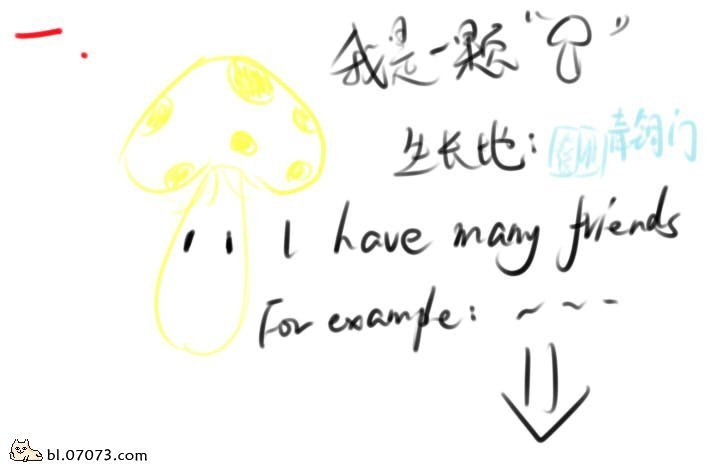 一.
我是一颗“ ”
生长地: 青铜门
I have many friends
For example: ~ ~ ~
bl.07073.com